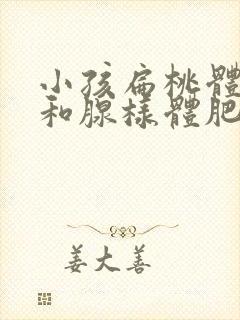 小孩扁桃體
和腺樣體肥
姜大善